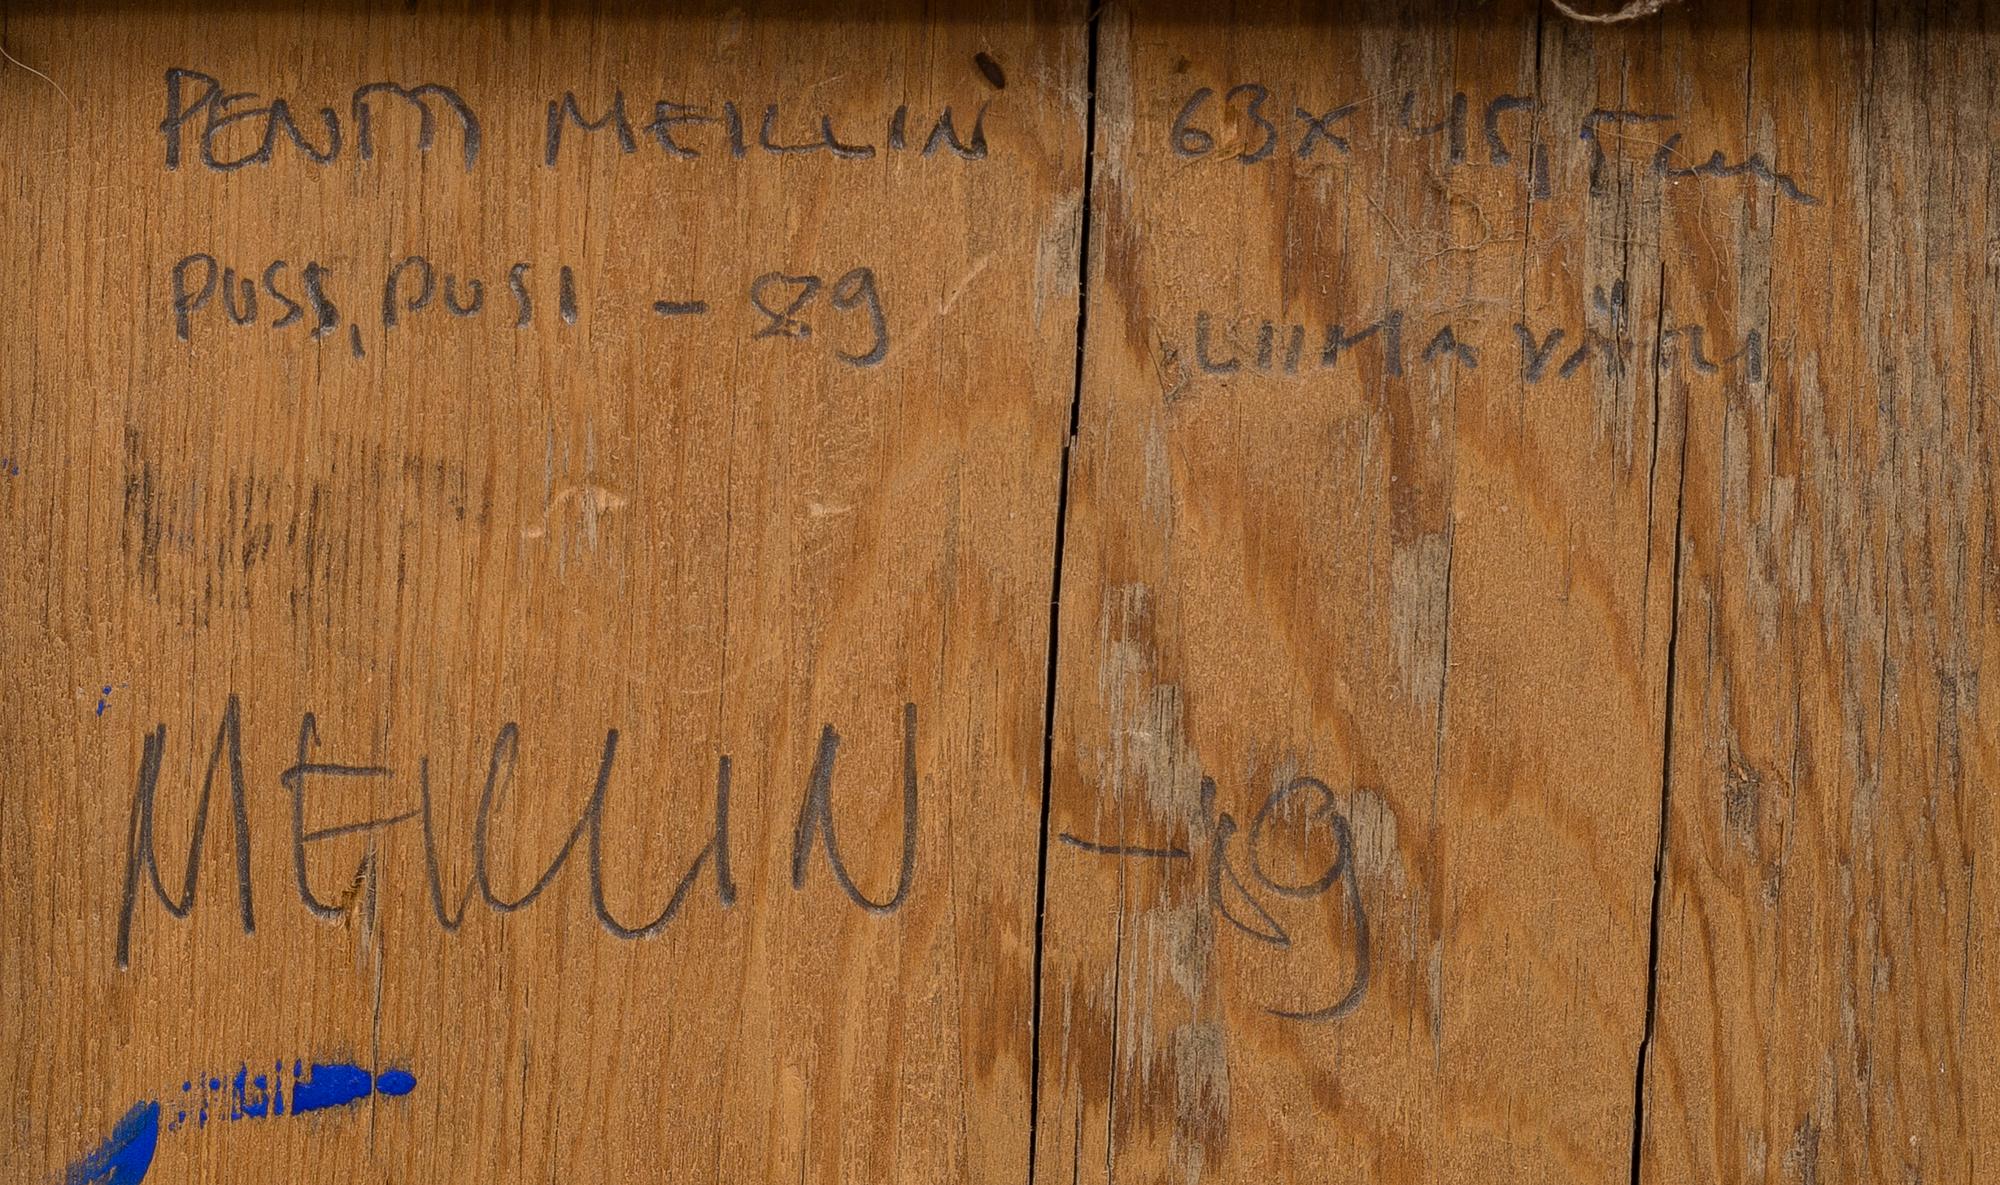 PENTTI MEILLIN 63x45,5cm
PUSS, PUSI - 89 LIIMAVÄRI
MEILLIN -89